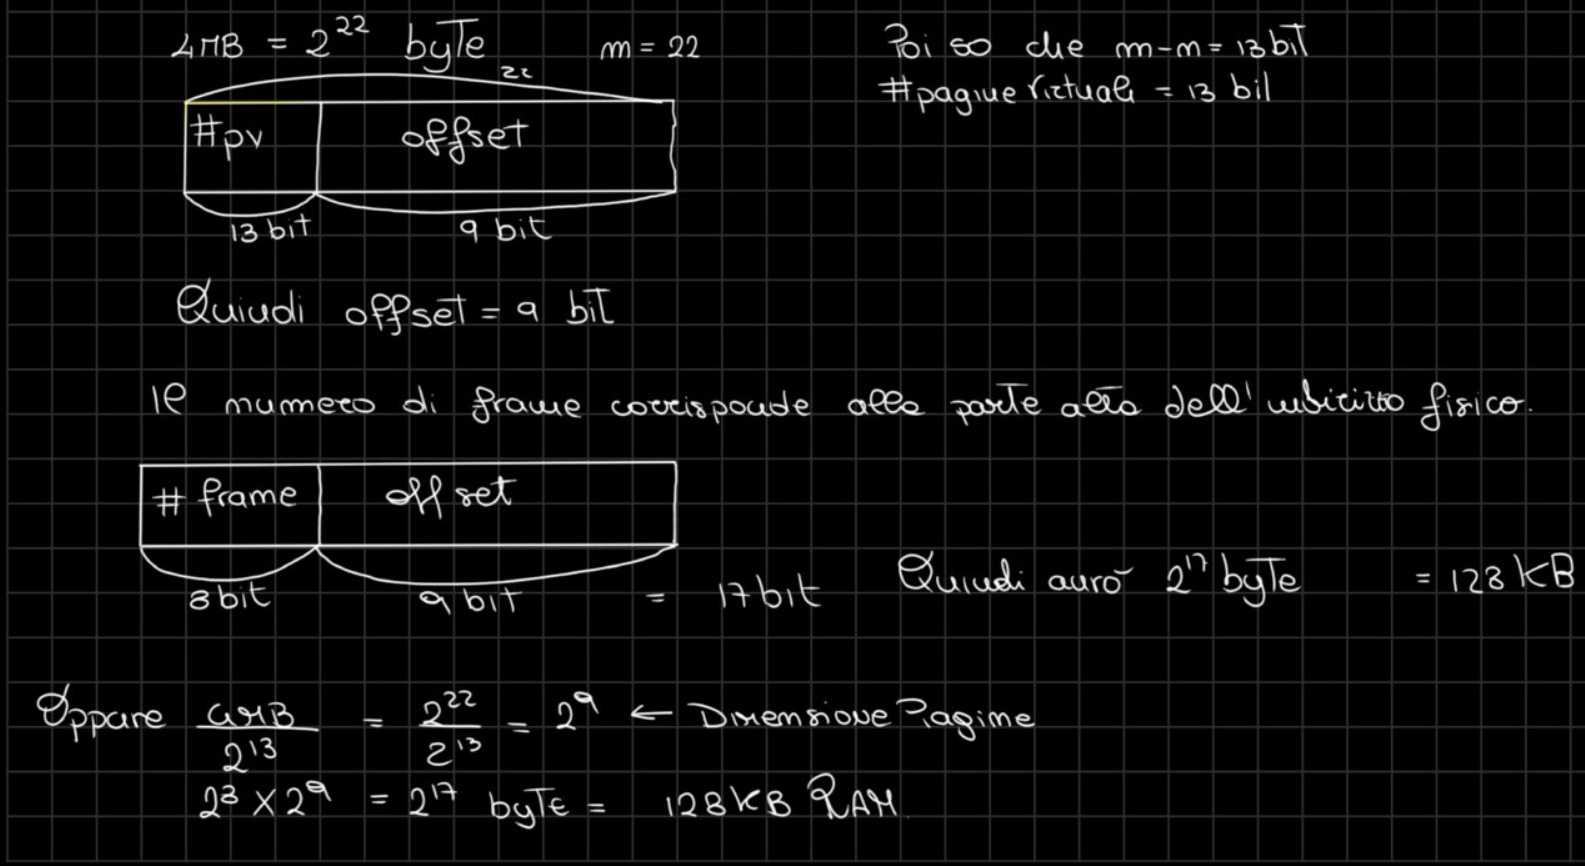 4MB = 2^22 byte m = 22
22
#pv offset
13 bit 9 bit
Poi so che m-n = 13 bit
#pagine virtuali = 13 bit
Quindi offset = 9 bit
Il numero di frame corrisponde alla parte alta dell'indirizzo fisico.
# frame offset
8 bit 9 bit = 17 bit Quindi avrò 2^17 byte = 128 KB
Oppure 4MB / 2^13 = 2^22 / 2^13 = 2^9 ← Dimensione Pagine
2^8 × 2^9 = 2^17 byte = 128 KB RAM